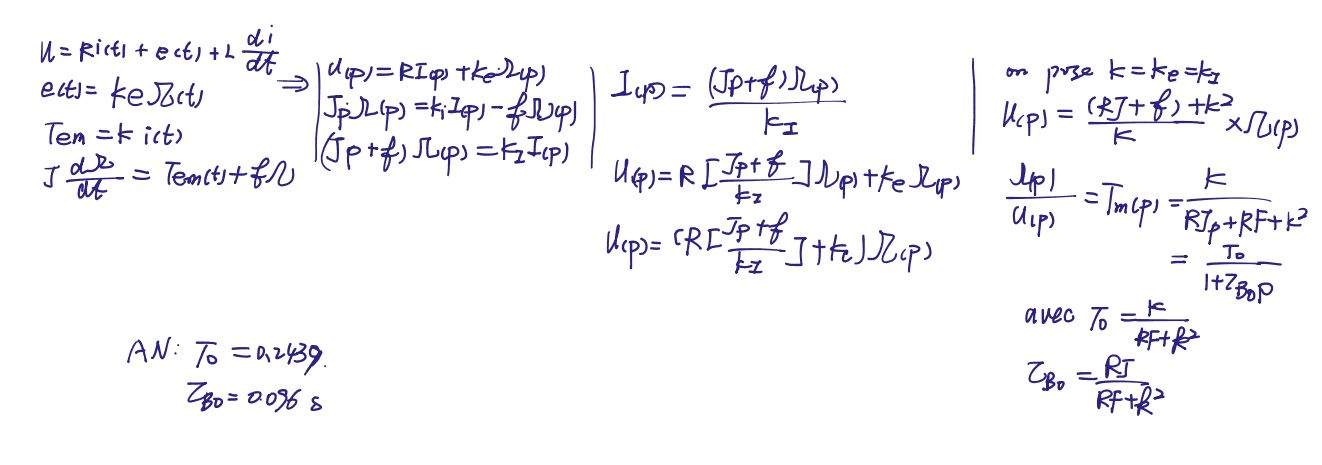 u = Ri(t) + e(t) + L di/dt
e(t) = ke Ω(t)
Tem = k i(t)
J dΩ/dt = Tem(t) + fΩ
⇒
U(p) = RI(p) + ke Ω(p)
Jp Ω(p) = ki I(p) - f Ω(p)
(Jp + f) Ω(p) = kI I(p)
I(p) = (Jp + f) Ω(p) / kI
U(p) = R [ (Jp + f) / kI ] Ω(p) + ke Ω(p)
U(p) = (R [ (Jp + f) / kI ] + ke) Ω(p)
on pose k = ke = kI
U(p) = ((RJ + f) + k²) / k × Ω(p)
Ω(p) / U(p) = Tm(p) = k / (RJp + RF + k²)
= T0 / (1 + τB0 p)
avec T0 = k / (RF + k²)
τB0 = RJ / (RF + k²)
AN: T0 = 0,2439.
τB0 = 0.096 s